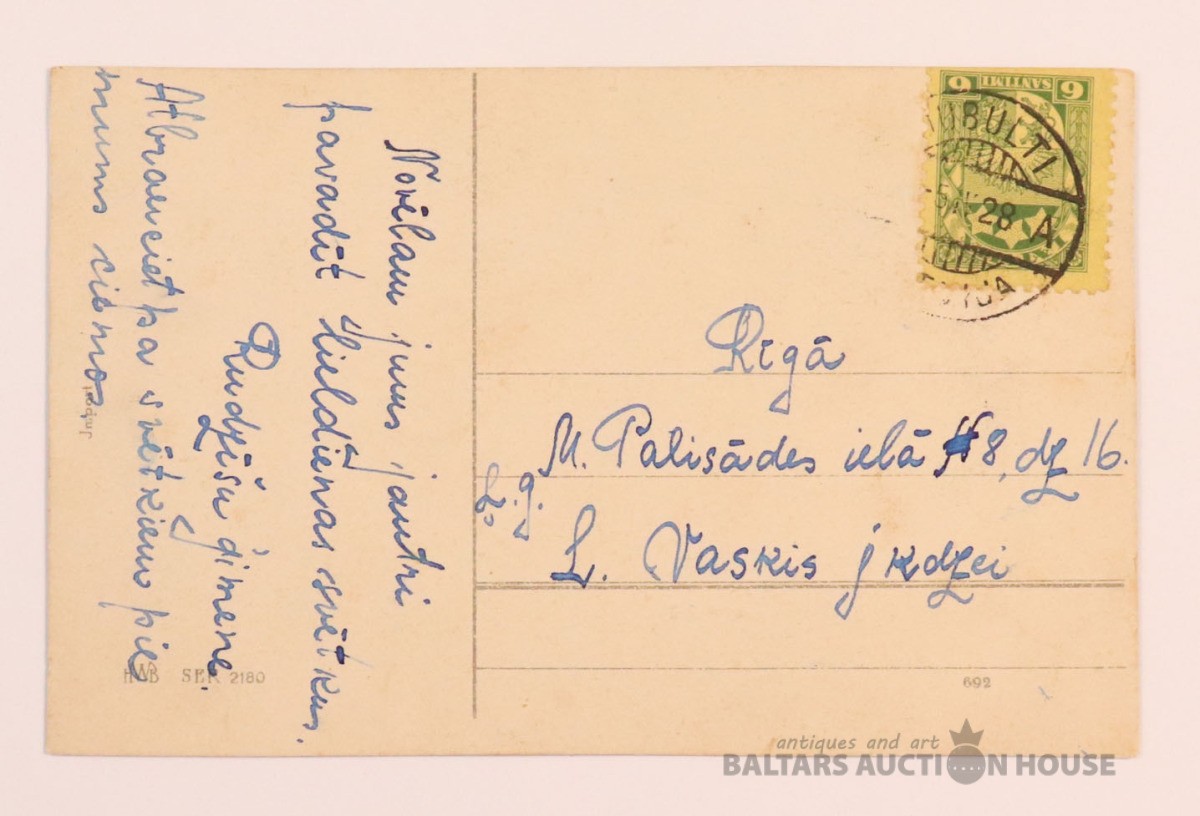 Novēlam jums jautri
pavadīt Lieldienas svētkus.
Rudzīšu ģimene.
Atbrauciet pa svētkiem pie
mums ciemo
Import
HWB SER 2180
6 SANTIMI 6
DUBULTI
28 A
Rīgā
M. Palisādes ielā #8, dz 16.
L. g.
L. Vaskis jkdzei
692
antiques and art
BALTARS AUCTION HOUSE